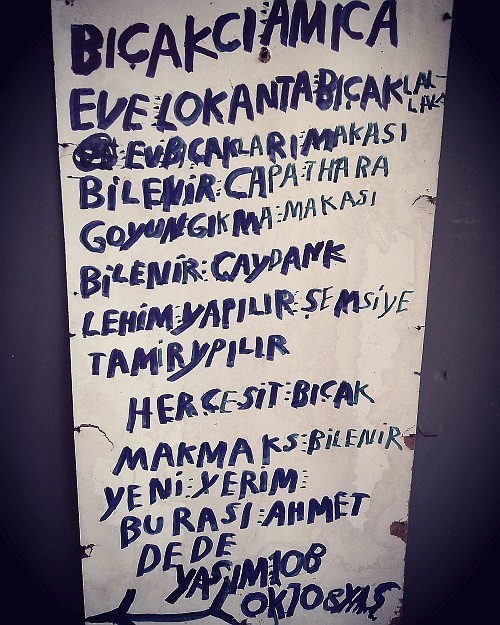 BIÇAKCI AMCA
EVE:LOKANTA:BIÇAKLAL-
LAK
EV:BIÇAKLARI:MAKASI
BİLENİR:ÇAPA:TAHARA
GOYUN:GIKMA:MAKASI
BİLENİR:ÇAYDANK
LEHİM:YAPILIR:ŞEMSİYE
TAMİRYPILIR
HERÇEŞİT:BIÇAK
MAKMAKS:BİLENİR
YENİ:YERİM:
BURASI:AHMET
DEDE
YAŞIM108